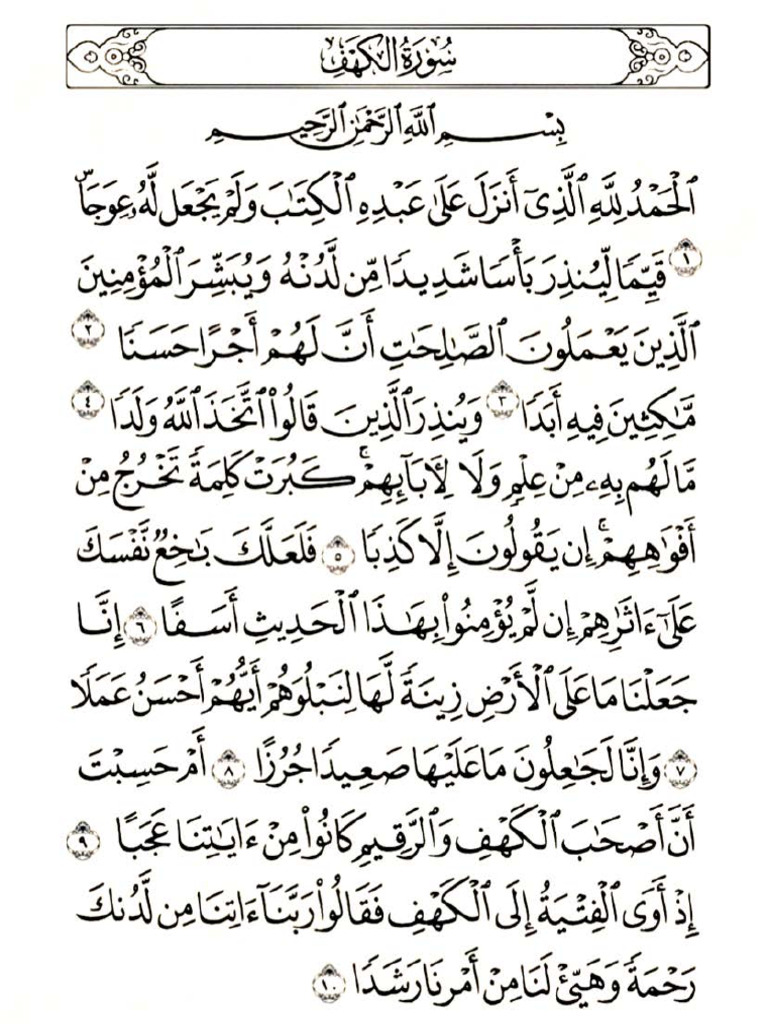 سُورَةُ الكَهْفِ
بِسْمِ ٱللَّهِ ٱلرَّحْمَٰنِ ٱلرَّحِيمِ
ٱلْحَمْدُ لِلَّهِ ٱلَّذِىٓ أَنزَلَ عَلَىٰ عَبْدِهِ ٱلْكِتَٰبَ وَلَمْ يَجْعَل لَّهُۥ عِوَجَاۜ
١ قَيِّمًا لِّيُنذِرَ بَأْسًا شَدِيدًا مِّن لَّدُنْهُ وَيُبَشِّرَ ٱلْمُؤْمِنِينَ
ٱلَّذِينَ يَعْمَلُونَ ٱلصَّٰلِحَٰتِ أَنَّ لَهُمْ أَجْرًا حَسَنًا ٢
مَّٰكِثِينَ فِيهِ أَبَدًا ٣ وَيُنذِرَ ٱلَّذِينَ قَالُوا۟ ٱتَّخَذَ ٱللَّهُ وَلَدًا ٤
مَّا لَهُم بِهِۦ مِنْ عِلْمٍ وَلَا لِـَٔابَآئِهِمْ ۚ كَبُرَتْ كَلِمَةً تَخْرُجُ مِنْ
أَفْوَٰهِهِمْ ۚ إِن يَقُولُونَ إِلَّا كَذِبًا ٥ فَلَعَلَّكَ بَٰخِعٌ نَّفْسَكَ
عَلَىٰٓ ءَاثَٰرِهِمْ إِن لَّمْ يُؤْمِنُوا۟ بِهَٰذَا ٱلْحَدِيثِ أَسَفًا ٦ إِنَّا
جَعَلْنَا مَا عَلَى ٱلْأَرْضِ زِينَةً لَّهَا لِنَبْلُوَهُمْ أَيُّهُمْ أَحْسَنُ عَمَلًا
٧ وَإِنَّا لَجَٰعِلُونَ مَا عَلَيْهَا صَعِيدًا جُرُزًا ٨ أَمْ حَسِبْتَ
أَنَّ أَصْحَٰبَ ٱلْكَهْفِ وَٱلرَّقِيمِ كَانُوا۟ مِنْ ءَايَٰتِنَا عَجَبًا ٩
إِذْ أَوَى ٱلْفِتْيَةُ إِلَى ٱلْكَهْفِ فَقَالُوا۟ رَبَّنَآ ءَاتِنَا مِن لَّدُنكَ
رَحْمَةً وَهَيِّئْ لَنَا مِنْ أَمْرِنَا رَشَدًا ١٠